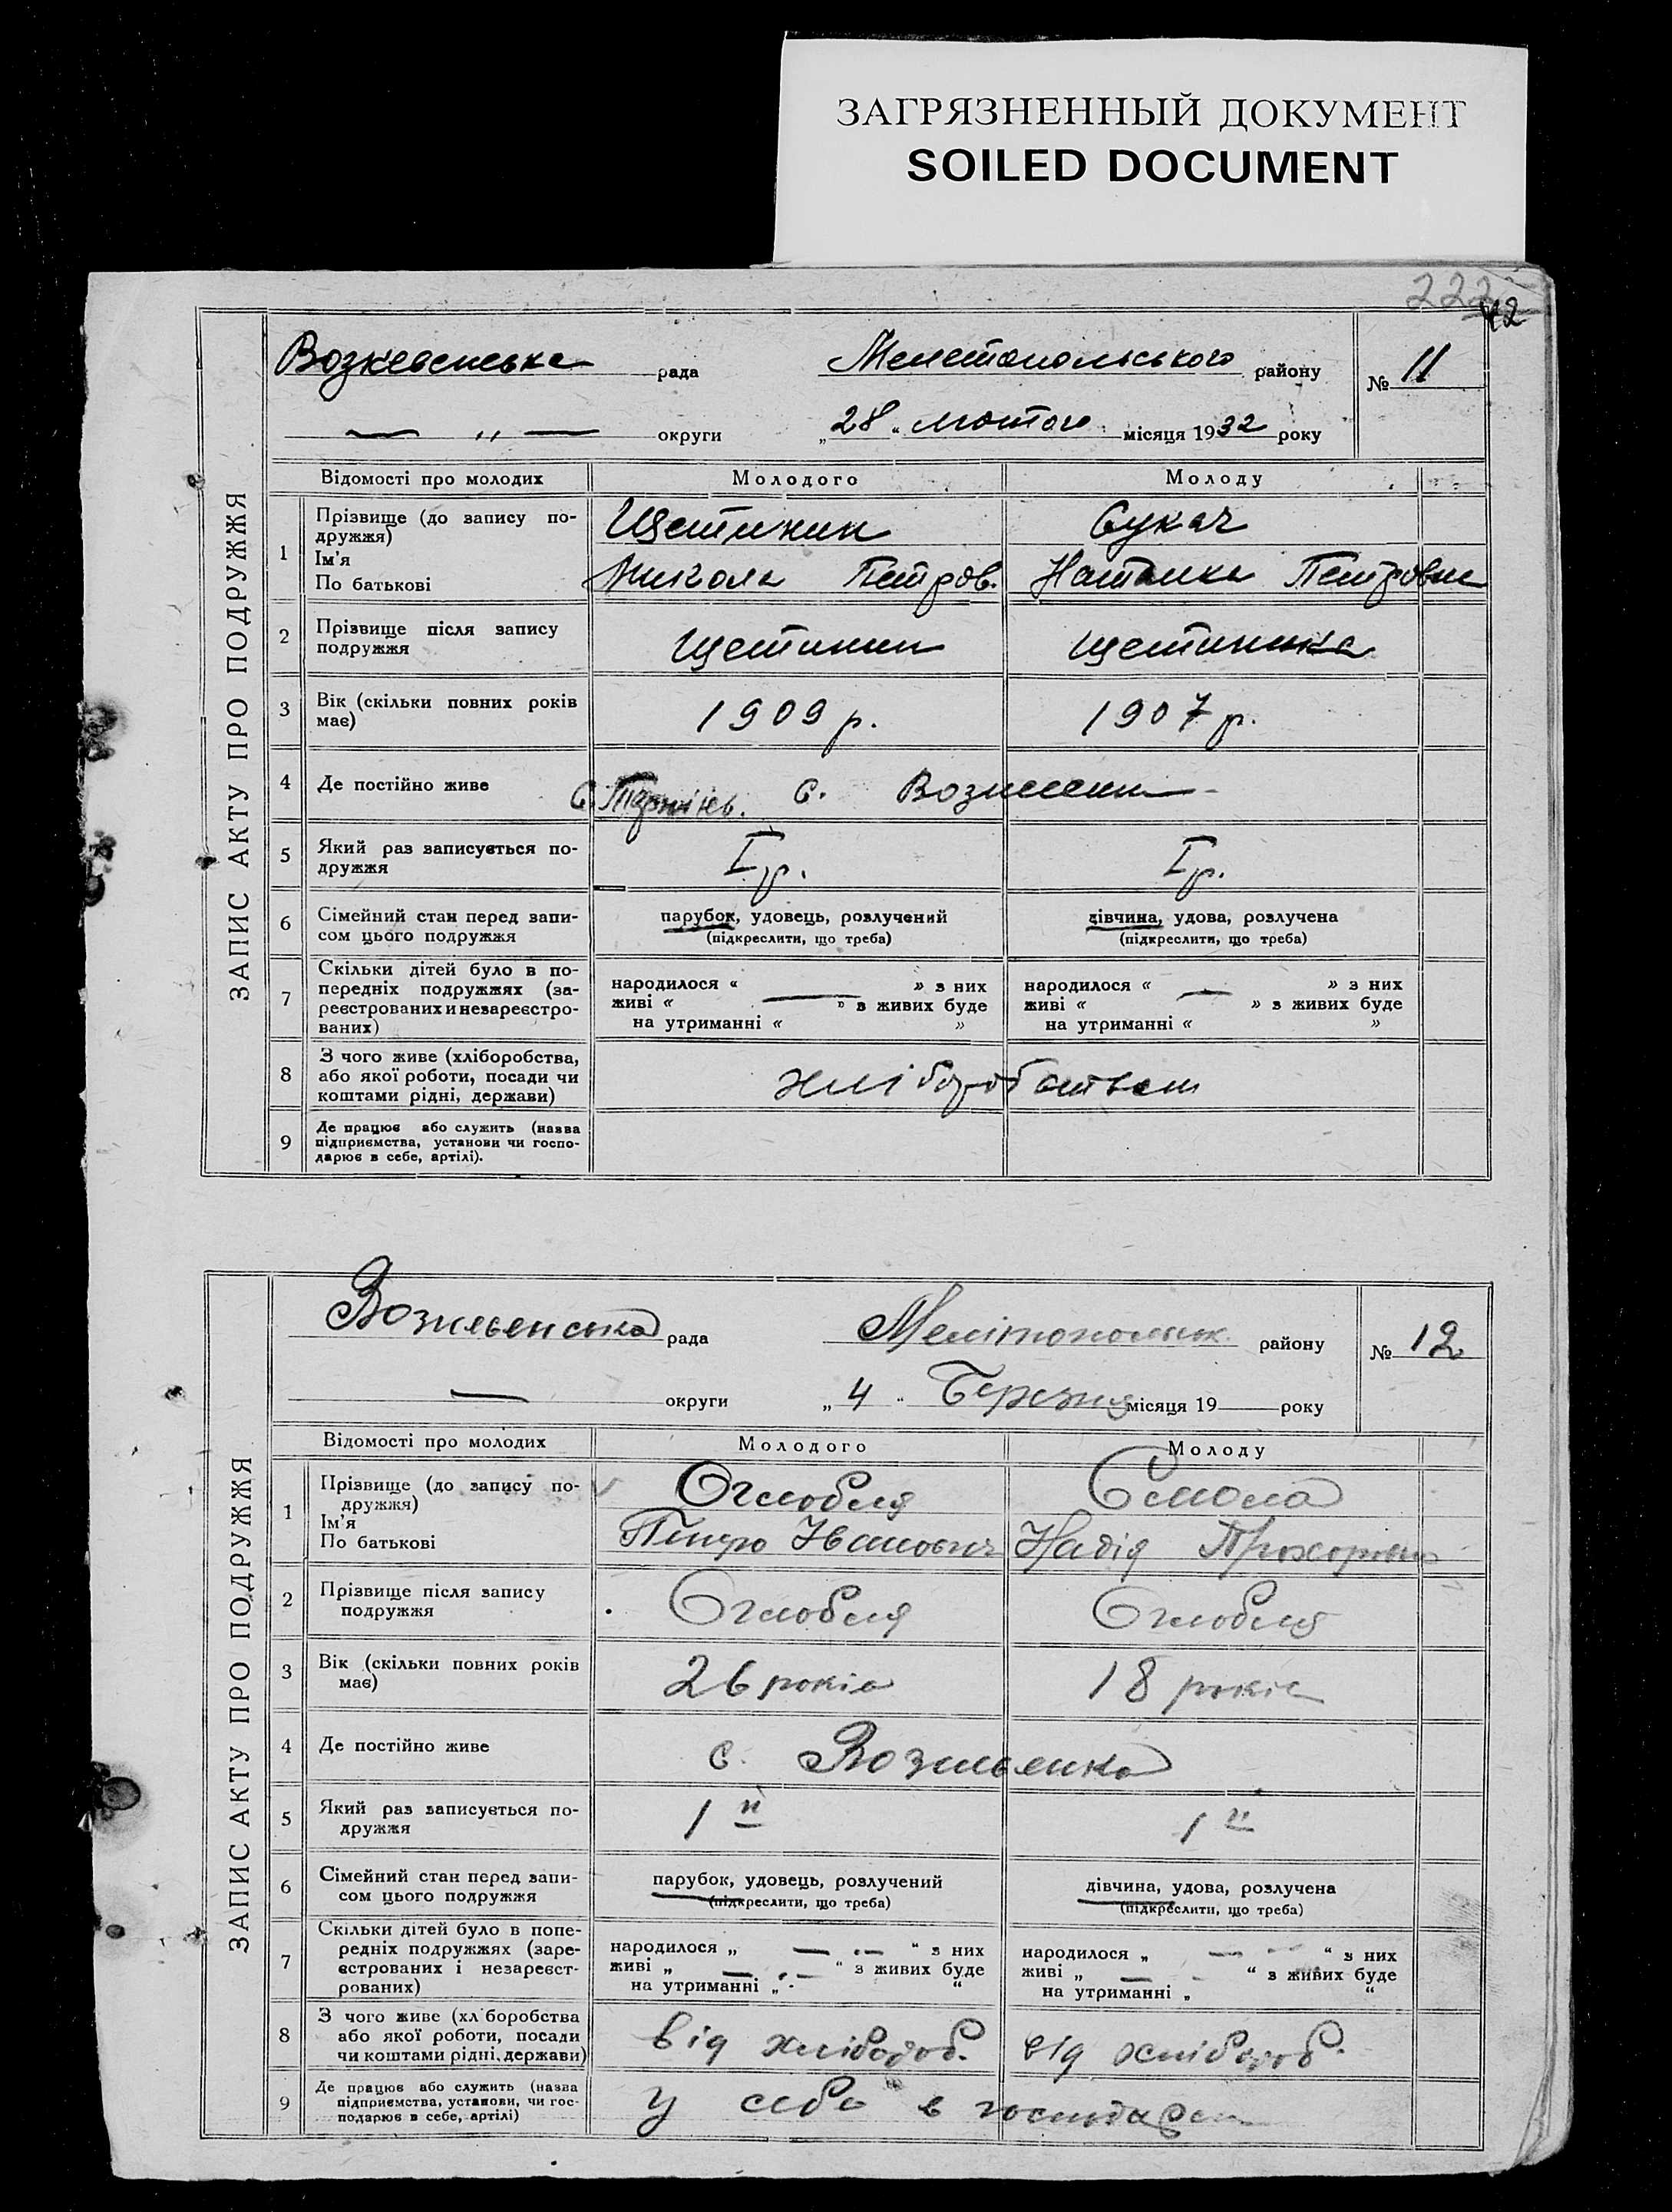 ЗАГРЯЗНЕННЫЙ ДОКУМЕНТ
SOILED DOCUMENT
222
42
ЗАПИС АКТУ ПРО ПОДРУЖЖЯ
рада Мелетопольського району № 11
— „ — округи „28“ лютого місяця 1932 року
Відомості про молодих Молодого Молоду
1 Прізвище (до запису по-
дружжя)
Ім'я
По батькові
Щетинин Сукач
Микола Петров. Наталка Петровна
2 Прізвище після запису
подружжя
Щетинин Щетинина
3 Вік (скільки повних років
має)
1909 р. 1907 р.
4 Де постійно живе
с. с.
5 Який раз записується по-
дружжя
I р. I р.
6 Сімейний стан перед запи-
сом цього подружжя
парубок, удовець, розлучений
(підкреслити, що треба)
дівчина, удова, розлучена
(підкреслити, що треба)
7 Скільки дітей було в по-
передніх подружжях (за-
реєстрованих и незареєстро-
ваних)
народилося « — » з них
живі « » в живих буде
на утриманні « »
народилося « — » з них
живі « » з живих буде
на утриманні « »
8 З чого живе (хліборобства,
або якої роботи, посади чи
коштами рідні, держави)
хліборобством
9 Де працює або служить (назва
підприємства, установи чи госпо-
дарює в себе, артілі).
ЗАПИС АКТУ ПРО ПОДРУЖЖЯ
рада Мелітопольськ. району № 12
— округи „4“ Березня місяця 19— року
Відомості про молодих Молодого Молоду
1 Прізвище (до запису по-
дружжя)
Ім'я
По батькові
Оглобля Смола
Петро Іванович Надія Прохоровна
2 Прізвище після запису
подружжя
Оглобля Оглобля
3 Вік (скільки повних років
має)
26 років 18 років
4 Де постійно живе
с.
5 Який раз записується по-
дружжя
1й 1й
6 Сімейний стан перед запи-
сом цього подружжя
парубок, удовець, розлучений
(підкреслити, що треба)
дівчина, удова, розлучена
(підкреслити, що треба)
7 Скільки дітей було в попе-
редніх подружжях (заре-
єстрованих і незареєст-
рованих)
народилося „ — — “ з них
живі „ — — “ з живих буде
на утриманні „ “
народилося „ — — “ з них
живі „ — - “ з живих буде
на утриманні „ “
8 З чого живе (хл боробства
або якої роботи, посади
чи коштами рідні, держави)
від хлібороб. від хлібороб.
9 Де працює або служить (назва
підприємства, установи, чи гос-
подарює в себе, артілі)
у себе в